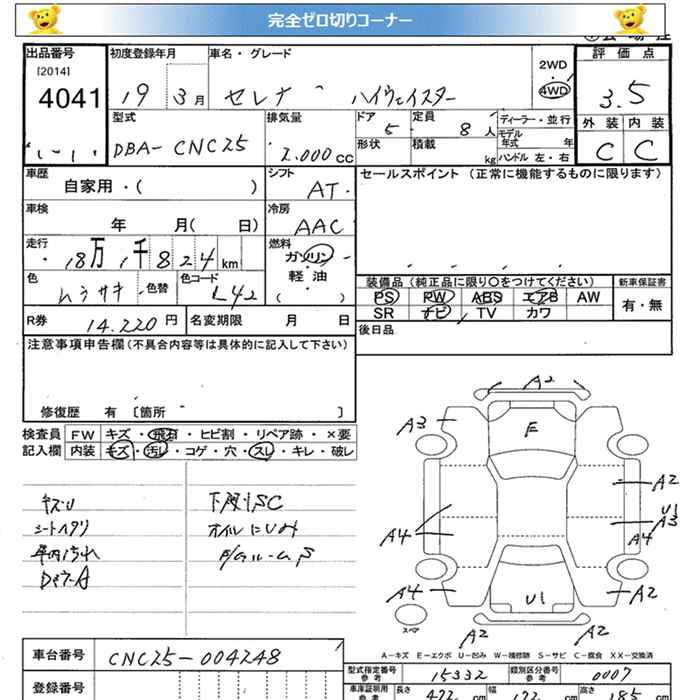 完全ゼロ切りコーナー
出品番号 初度登録年月 車名・グレード 2WD 評価点
[2014] 4041 19 3月 セレナ ハイウェイスター 4WD 3.5
型式 排気量 ドア 定員 ディーラー・並行 外装 内装
DBA-CNC25 2.000cc 5 8人 モデル年式 年 C C
形状 積載 kg ハンドル 左・右
車歴 シフト セールスポイント (正常に機能するものに限ります)
自家用・( ) AT
車検 冷房
年 月( 日) AAC
走行 燃料
18万1千824km ガソリン
軽・油
( )
色 色替 色コード 装備品 (純正品に限り○をつけてください) 新車保証書
ムラサキ L42 PS PW ABS エアB AW 有・無
SR ナビ TV カワ
R券 14.220円 名変期限 月 日 後日品
注意事項申告欄(不具合内容等は具体的に記入して下さい)
修復歴 有 [箇所 ]
検査員 FW キズ・飛石・ヒビ割・リペア跡・×要
記入欄 内装 キズ・汚レ・コゲ・穴・スレ・キレ・破レ
キズU 下廻りSC
シートヘタリ オイルにじみ
A2
A3 F
A2
U1
A4 A3
A4
A4 U1 A2
スペア
A2 A2
A-キズ E-エクボ U-凹み W-補修跡 S-サビ C-腐食 XX-交換済
車台番号 CNC25-004248 型式指定番号 参考 15332 類別区分番号 参考 0007
登録番号 車庫証明用 参考 長さ 472 cm 幅 172 cm 高さ 185 cm